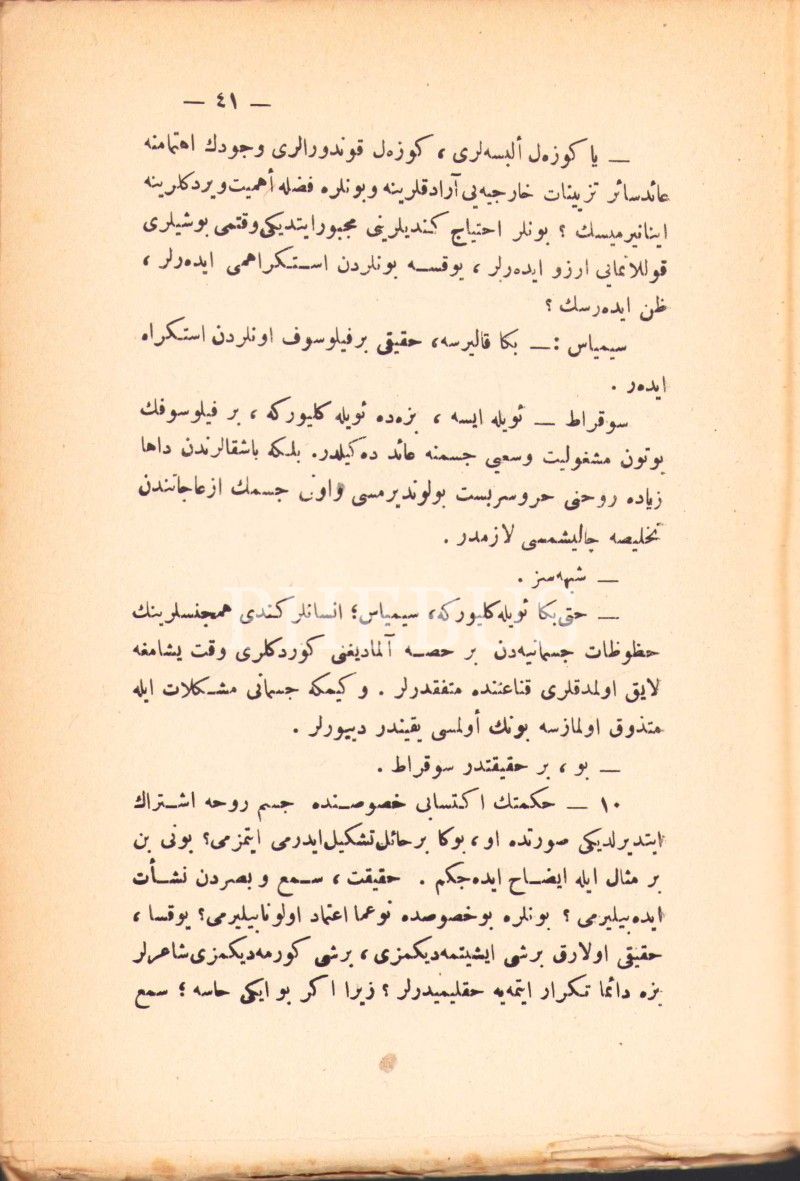 — ٤١ —
— يا كوزەل ألبسه‌لری ، كوزەل قوندورالری وجودك اهتمامنه
عائد سائر تزیینات خارجیه‌یی آرادقلرینه و بونلره فضله أهمیت ویردكلرینه
اینانیرمیسك ؟ بونلر احتیاج كندیلرینی مجبور ایتدیكی وقتمی بوشیلری
قوللانمایی ارزو ایدەرلر ، یوقســه بونلردن استـكراهمی ایدەرلر ،
ظن ایدەرسك ؟
سیمیاس : — بكا قالیرسه، حقیقی برفیلوسوف اونلردن استكراه
ایدەر .
سوقراط — ئویله ایسه ، بزەده ئویله كلیوركه ، بر فیلوسوفك
بوتون مشغولیت وسعیی جسمنه عائد دەكیلدر. بلكه باشقالرندن داها
زیاده روحنی حروسربست بولوندیرمسی واونی جسمك ازعاجاتندن
تخلیصه چالیشمسی لازمدر .
— شبهه‌سز .
— حتی بكا ئویله كلیوركه، سیمیاس؛ انسانلر كندی همجنسلرینك
حظوظات جسمانیه‌دن بر حصــه آلمادیغنی كوردكلری وقت یشامغه
لایق اولمدقلری قناعتنده متفقدرلر . و كیمكه جسمانی مشـكلات ایله
متذوق اولمازسه بونك أولمسی یقیندر دییورلر .
— بو ، بر حقیقتدر سوقراط .
١٠ — حكمتك اكتسابی خصوصـنده جسم روحه اشـتراك
ایتدیرلدیكی صورتده او ، بوكا بر حائل تشكیل ایدرمی ایتمزمی؟ بونی بن
بر مثال ایله ایضــاح ایده‌جكم . حقیقت ، ســمع و بصردن نشــأت
ایده‌بیلیرمی ؟ بونلره بوخصوصده نوعما اعتماد اولونابیلیرمی؟ یوقسا ،
حقیقی اولارق برشی ایشیتمه‌دیكمزی ، برشی كورمه‌دیكمزی شاعرلر
بزه دائما تـكرار ایتمه‌یه حقلیمیدرلر ؟ زیرا اكر بو ایكی حاسه ؛ سمع